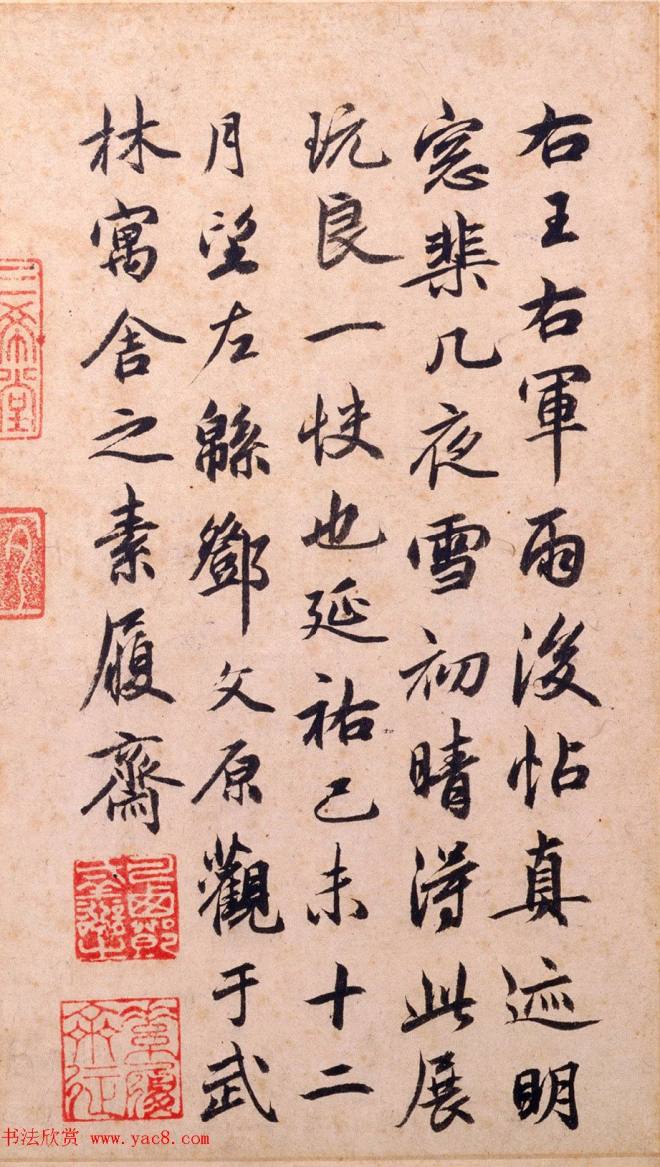 右王右軍雨後帖真迹明
窓棐几夜雪初晴得此展
玩良一快也延祐己未十二
月望左緜鄧文原觀于武
林寓舍之素履齋
三希堂
書法欣赏 www.yac8.com